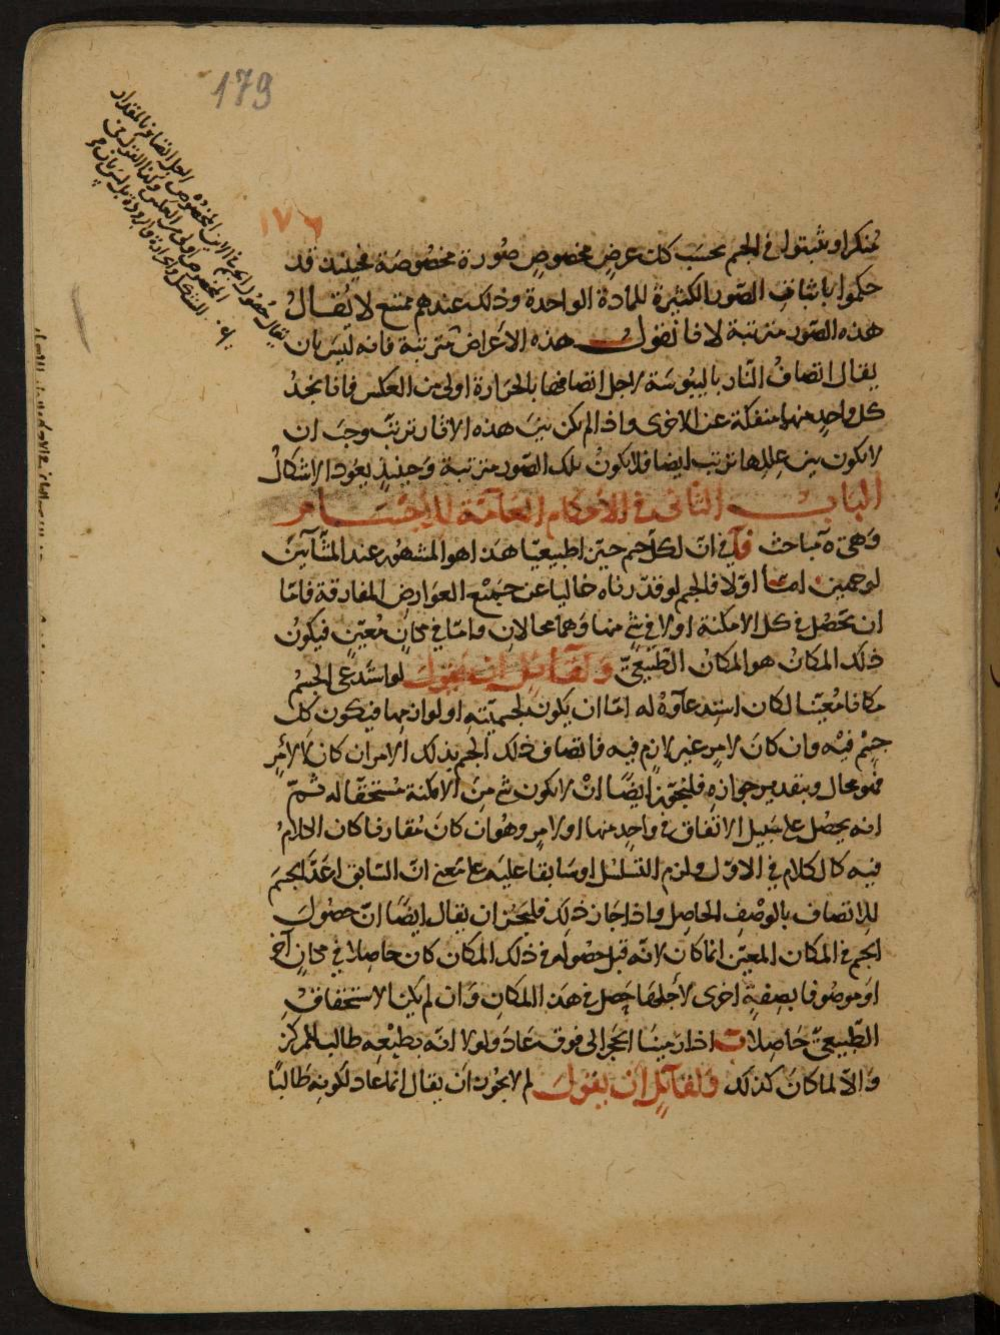 179
١٧٦
يقال حصول الجسم في الاين المخصوص لاجل اتصافه بالمقدار
المخصوص اولى من العكس وكذا القول في
التشكل والحرارة والبرودة
منكرا وشبتوا في الجسم بحسب كل عرض مخصوص صورة مخصوصة فحينئذ قد
حكموا باثبات الصور الكثيرة للمادة الواحدة وذلك عندهم ممتنع لا يقال
هذه الصور مترتبة لانا نقول هذه الاعراض مترتبة فانه ليس بان
يقال اتصاف النار باليبوسة لاجل اتصافها بالحرارة اولى من العكس فانا نجد
كل واحد منها منفكة عن الاخرى واذا لم يكن بين هذه الاثار ترتب وجب ان
لا يكون بين عللها ترتب ايضا فلا يكون تلك الصور مترتبة وحينئذ يعود الاشكال
الباب الثاني في الاحكام العامة للاجسام
وهي ه مباحث آ في ان لكل جسم حيزا طبيعيا هذا هو المشهور عند المشآيين
لوجهين اما اولا فالجسم لو قدرناه خاليا عن جميع العوارض المفارقة فاما
ان تحصل في كل الامكنة او لا في شئ منها وهما محالان واما في مكان معين فيكون
ذلك المكان هو المكان الطبيعي ولقائل ان يقول لو استدعى الجسم
مكانا معينا لكان استدعآؤه له اما ان يكون لجسميته او لوازمها فيكون كل
جسم فيه وان كان لامر غير لازم فيه فاتصاف ذلك الجسم بذلك الامر ان كان لا لامر
فهو محال وبتقدير جوازه فليجوز ايضا ان لا يكون شئ من الامكنة مستحقا له ثم
انه يحصل على سبيل الاتفاق في واحد منها او لامر وهو ان كان مقارنا كان الكلام
فيه كالكلام في الاول ولزم التسلسل او سابقا عليه على معنى ان السابق اعد الجسم
للاتصاف بالوصف الحاصل واذا جاز ذلك فليجز ان يقال ايضا ان حصول
الجسم في المكان المعين انما كان لانه قبل حصوله في ذلك المكان كان حاصلا في مكان آخر
او موصوفا بصفة اخرى لاجلها حصل في هذا المكان وان لم يكن الاستحقاق
الطبيعي حاصلا ب اذا رمينا الحجر الى فوق عاد ولولا انه بطبعه طالب للمركز
والا لما كان كذلك ولقائل ان يقول لم لا يجوز ان يقال انما عاد لكونه طالبا